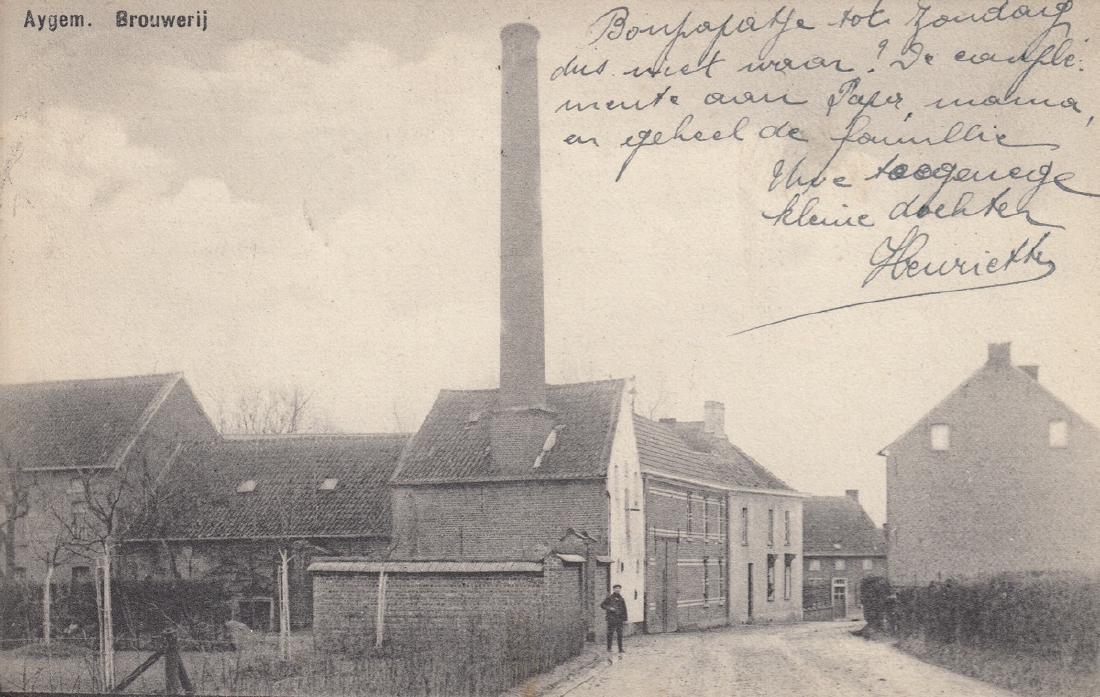 Aygem. Brouwerij
Bonpapatje tot Zondag
dus niet waar? De compli-
mente aan Papa, mama,
en geheel de famillie
Uwe toegenege
kleine dochter
Henriette